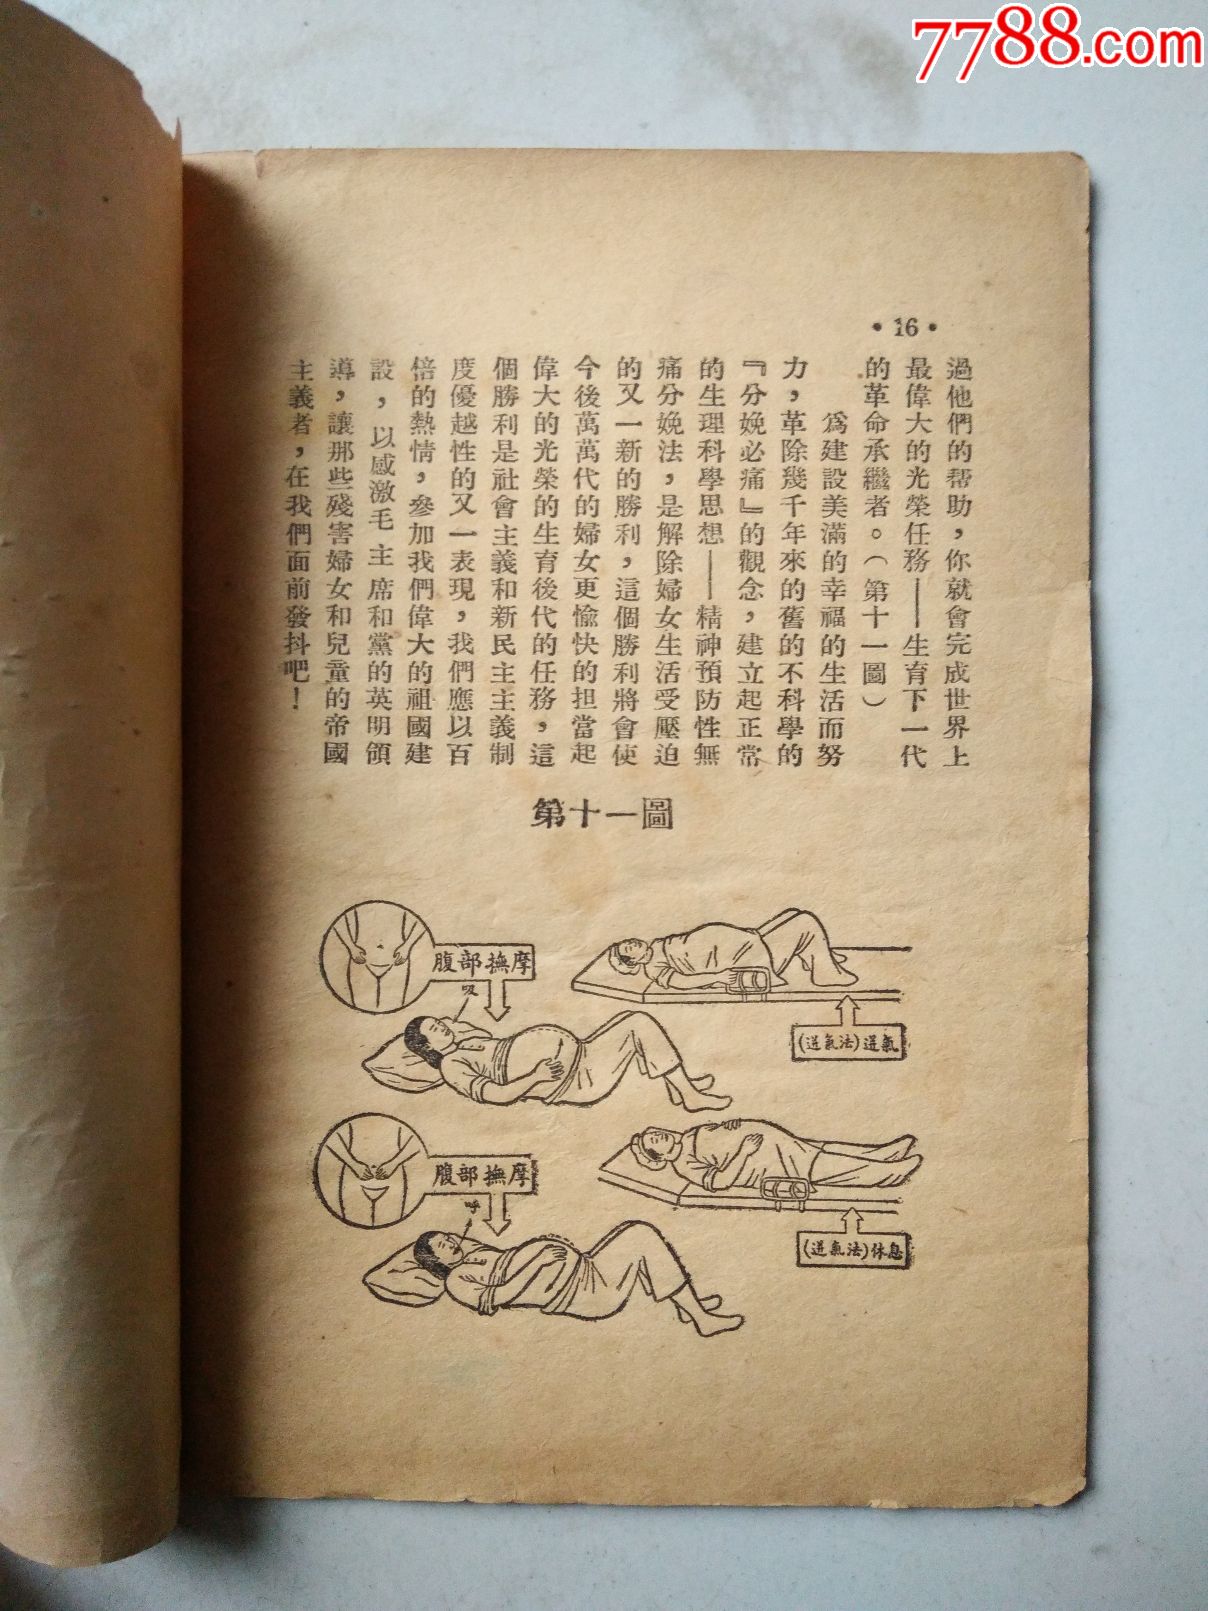 7788.com
•16•
過他們的帮助，你就會完成世界上
最偉大的光榮任務——生育下一代
的革命承繼者。（第十一圖）
爲建設美滿的幸福的生活而努
力，革除幾千年來的舊的不科學的
『分娩必痛』的觀念，建立起正常
的生理科學思想——精神預防性無
痛分娩法，是解除婦女生活受壓迫
的又一新的勝利，這個勝利將會使
今後萬萬代的婦女更愉快的担當起
偉大的光榮的生育後代的任務，這
個勝利是社會主義和新民主主義制
度優越性的又一表現，我們應以百
倍的熱情，參加我們偉大的祖國建
設，以感激毛主席和黨的英明領
導，讓那些殘害婦女和兒童的帝國
主義者，在我們面前發抖吧！
第十一圖
腹部撫摩
吸
(逆氣法)逆氣
腹部撫摩
呼
(逆氣法)休息